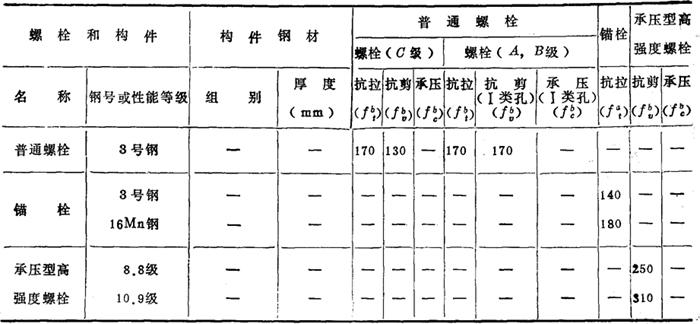 螺栓和构件 构件钢材 普通螺栓 锚栓 承压型高强度螺栓
螺栓(C级) 螺栓(A,B级)
名称 钢号或性能等级 组别 厚度(mm) 抗拉(f_t^b) 抗剪(f_v^b) 承压(f_c^b) 抗拉(f_t^b) 抗剪(Ⅰ类孔)(f_v^b) 承压(Ⅰ类孔)(f_c^b) 抗拉(f_t^a) 抗剪(f_v^b) 承压(f_c^b)
普通螺栓 3号钢 — — 170 130 — 170 170 — — — —
锚栓 3号钢 — — — — — — — — 140 — —
16Mn钢 — — — — — — — — 180 — —
承压型高强度螺栓 8.8级 — — — — — — — — — 250 —
10.9级 — — — — — — — — — 310 —